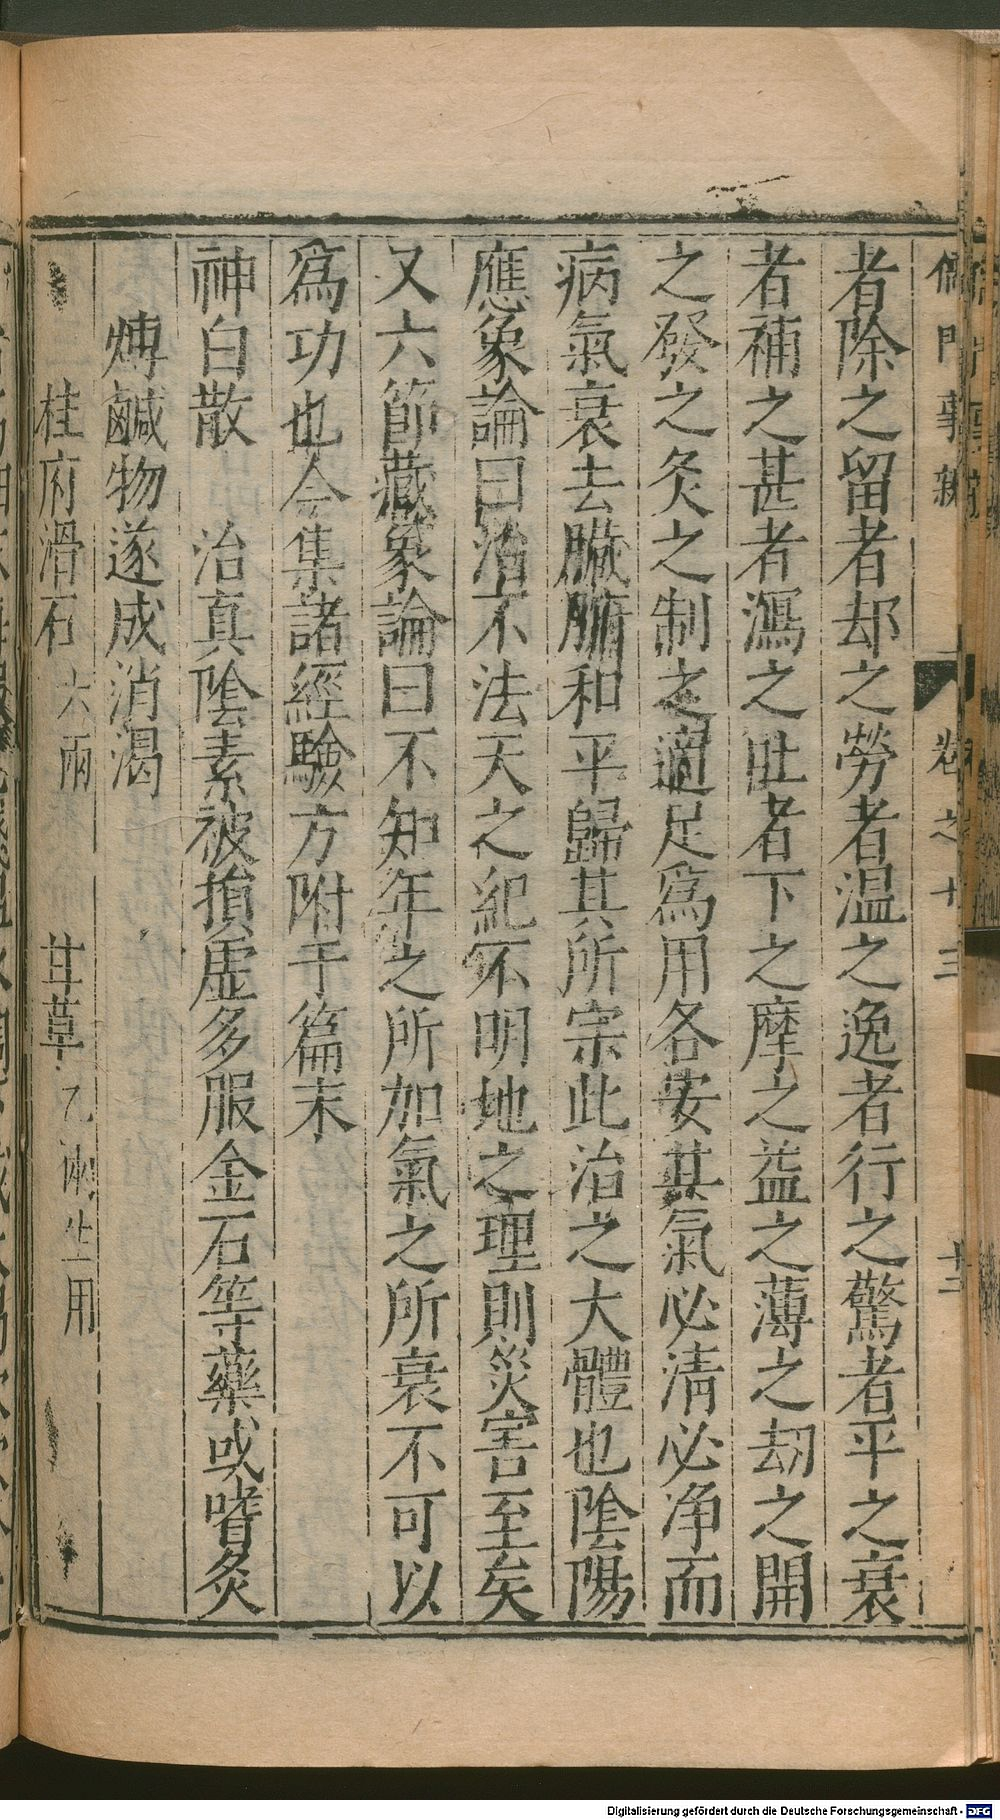 儒門事親 卷之十三 十二
者除之留者却之勞者温之逸者行之驚者平之衰
者補之甚者瀉之吐者下之摩之益之薄之劫之開
之發之灸之制之適足爲用各安其氣必清必净而
病氣衰去臟腑和平歸其所宗此治之大體也陰陽
應象論曰治不法天之紀不明地之理則災害至矣
又六節藏象論曰不知年之所加氣之所衰不可以
爲功也今集諸經驗方附于篇末
神白散 治真陰素被損虚多服金石等藥或嗜炙
煿鹹物遂成消渴
桂府滑石六兩 甘草乙兩生用
Digitalisierung gefördert durch die Deutsche Forschungsgemeinschaft - DFG